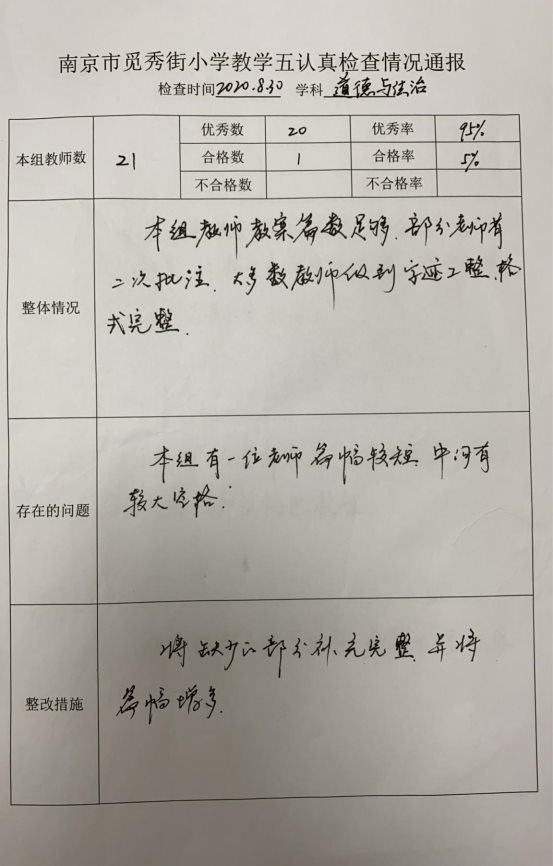 南京市觅秀街小学教学五认真检查情况通报
检查时间2020.8.30 学科 道德与法治
本组教师数 21 优秀数 20 优秀率 95%
合格数 1 合格率 5%
不合格数 不合格率
整体情况
本组教师教案篇数足够.部分老师有
二次批注.大多数教师做到字迹工整.格
式完整.
存在的问题
本组有一位老师篇幅较短.中间有
较大空格.
整改措施
将缺少的部分补充完整.并将
篇幅增多.